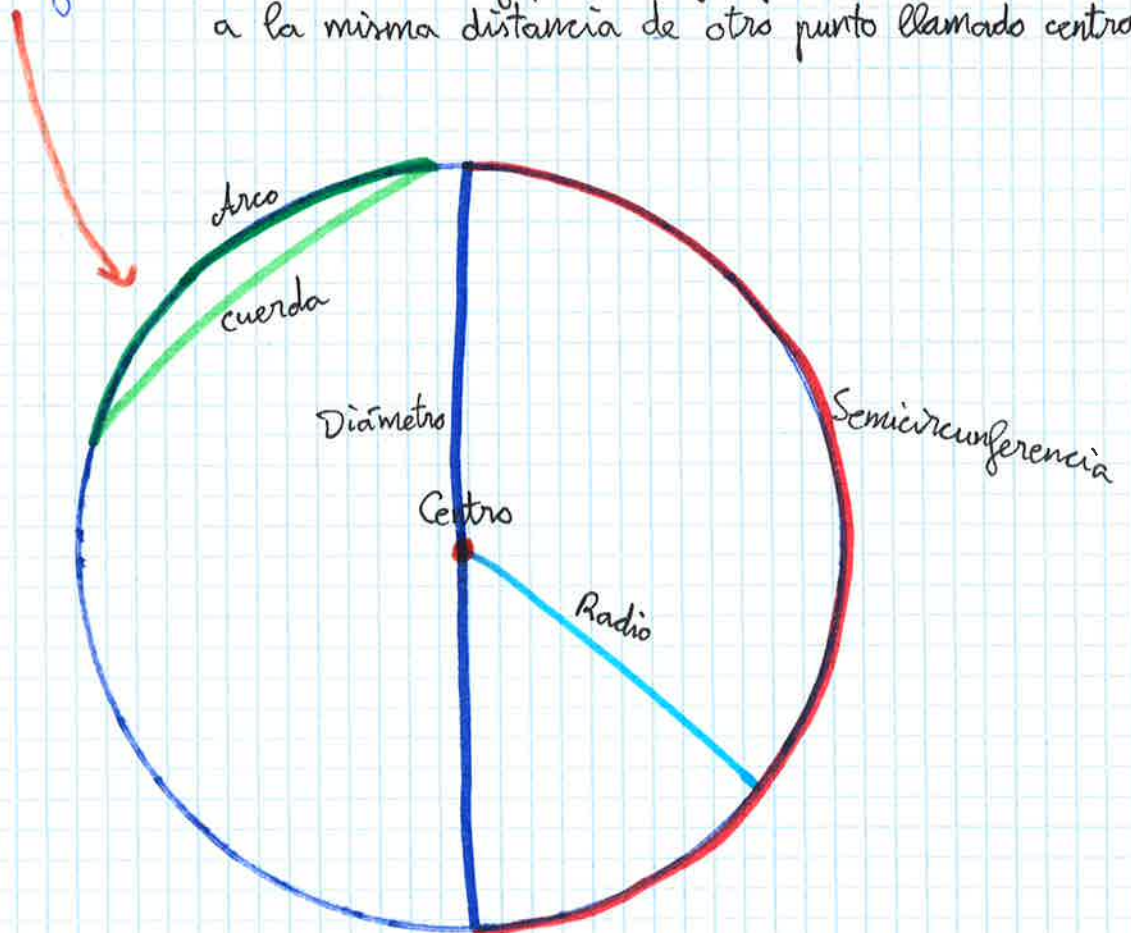 a la misma distancia de otro punto llamado centro
Arco
cuerda
Diámetro
Semicircunferencia
Centro
Radio